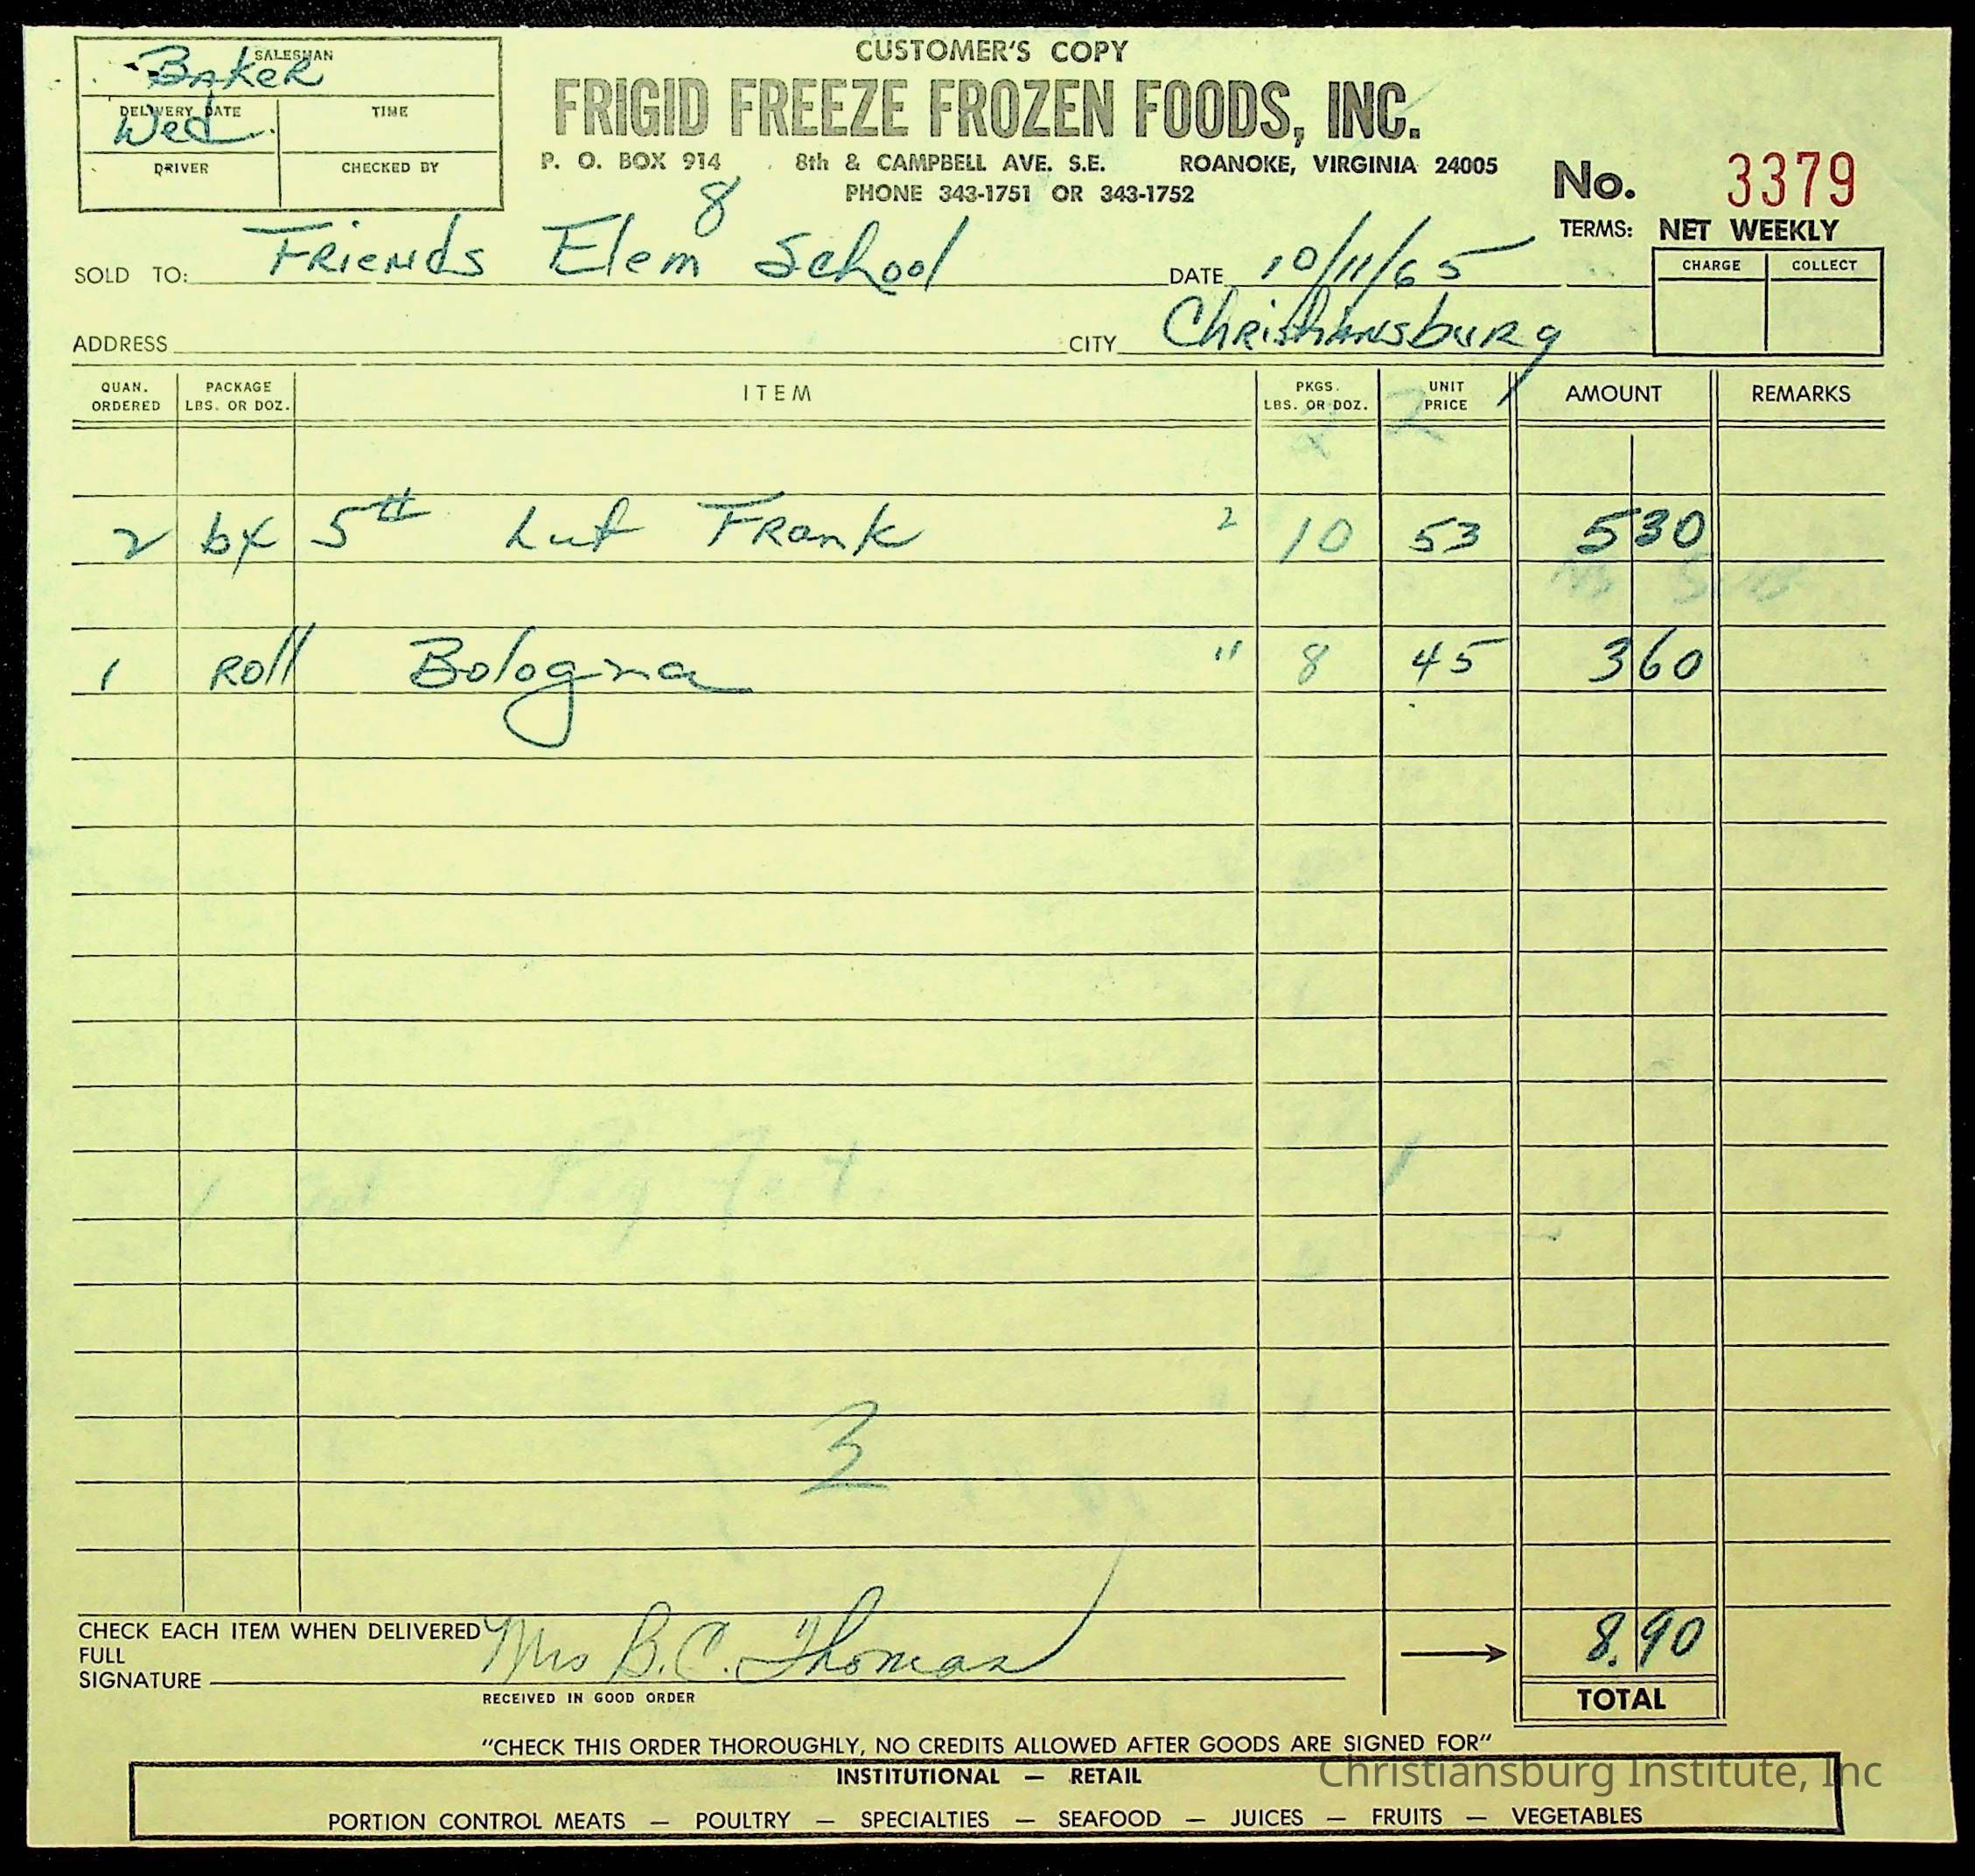 CUSTOMER'S COPY
SALESMAN
Baker
FRIGID FREEZE FROZEN FOODS, INC.
DELIVERY DATE TIME
Wed.
DRIVER CHECKED BY
P. O. BOX 914 8th & CAMPBELL AVE. S.E. ROANOKE, VIRGINIA 24005
PHONE 343-1751 OR 343-1752
No. 3379
8
TERMS: NET WEEKLY
SOLD TO: Friends Elem School DATE 10/11/65
CHARGE COLLECT
ADDRESS CITY Christiansburg
QUAN. ORDERED PACKAGE LBS. OR DOZ. ITEM PKGS. LBS. OR DOZ. UNIT PRICE AMOUNT REMARKS
2 bx 5# Frank 2 10 53 530
1 Roll Bologna " 8 45 360
3
CHECK EACH ITEM WHEN DELIVERED
FULL
SIGNATURE Mrs B.C. Thomas
8.90
RECEIVED IN GOOD ORDER
TOTAL
"CHECK THIS ORDER THOROUGHLY, NO CREDITS ALLOWED AFTER GOODS ARE SIGNED FOR"
INSTITUTIONAL — RETAIL
Christiansburg Institute, Inc
PORTION CONTROL MEATS — POULTRY — SPECIALTIES — SEAFOOD — JUICES — FRUITS — VEGETABLES